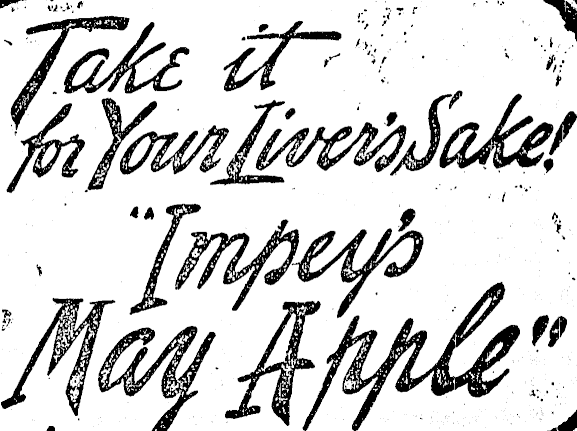 Take it
for Your Liver's Sake!
"Impey's
May Apple"